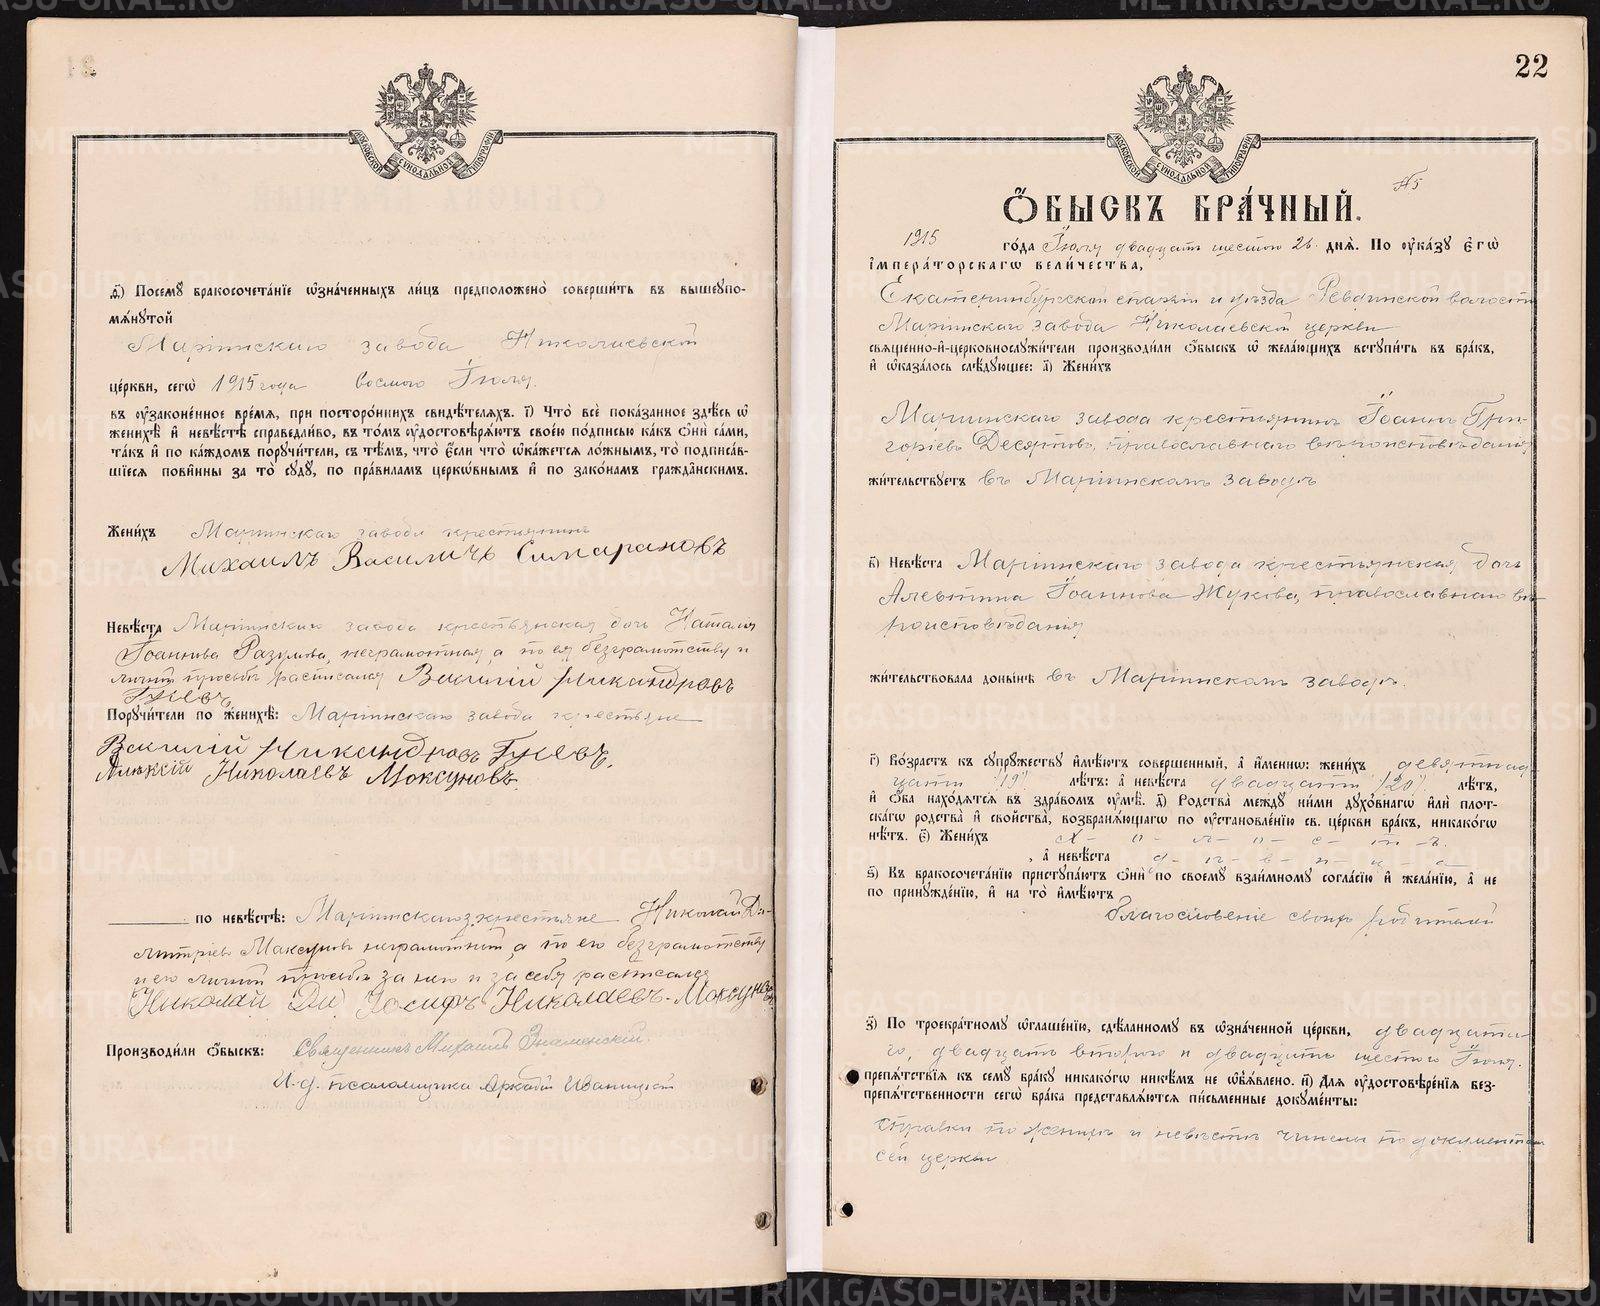 МОСКОВСКОЙ СѴНОДАЛЬНОЙ ТИПОГРАФІИ
д҃) Посемꙋ бракосочета́нїе ѡ҆зна́ченныхъ ли́цъ предположено̀ соверши́ть въ вышеꙋпо-
мѧ́нꙋтой
Маріинскаго завода Николаевской
це́ркви, сегѡ̀ 1915 года восмого Іюля.
въ ᲂу҆зако́ненное вре́мѧ, при посторо́ннихъ свидѣ́телѧхъ. і҃) Что̀ всѐ пока́занное здѣ́сь ѡ҆
женихѣ̀ и҆ невѣ́стѣ справедли́во, въ то́мъ ᲂу҆достовѣрѧ́ютъ свое́ю по́дписью ка́къ ѻ҆нѝ са́ми,
та́къ и҆ по ка́ждомъ порꙋчи́тели, съ тѣ́мъ, что̀ є҆́сли что̀ ѡ҆ка́жетсѧ ло́жнымъ, то̀ подписа́в-
шїесѧ пови́нны за то̀ сꙋдꙋ̀, по пра́виламъ церко́внымъ и҆ по зако́намъ гражда́нскимъ.
Жени́хъ Маріинскаго завода крестьянинъ
Михаилъ Василичъ Симарановъ
Невѣ́ста Маріинскаго завода крестьянская дочь Наталія
Іоаннова Разумова, неграмотная, а по ея безграмотству и
личной просьбѣ расписался Василій Никандровъ
Гуневъ
Порꙋчи́тели по женихѣ̀: Маріинскаго завода крестьяне
Василій Никандровъ Гуневъ.
Алѣксій Николаевъ Моксуновъ.
по невѣ́стѣ: Маріинскаго з. крестьяне Николай Ди-
митріевъ Максуновъ неграмотный, а по его безграмотству
и его личной просьбѣ за него и за себя расписался
Николай Ди Іосифъ Николаевъ Моксуновъ
Производи́ли ѻ҆́быскъ: Священникъ Михаилъ Знаменскій.
И. д. псаломщика Аркадій Иваницкій
22
МОСКОВСКОЙ СѴНОДАЛЬНОЙ ТИПОГРАФІИ
№ 5
Ѻ҆́БЫСКЪ БРА́ЧНЫЙ.
1915 го́да Іюля двадцать шестого 26 днѧ̀. По ᲂу҆ка́зꙋ Є҆гѡ̀
І҆мпера́торскагѡ вели́чества,
Екатеринбургской епархіи и уѣзда Ревдинской волости
Маріинскаго завода Николаевской церкви
свѧще́нно-и҆-церковнослꙋжи́тели производи́ли ѻ҆́быскъ ѡ҆ жела́ющихъ встꙋпи́ть въ бра́къ,
и҆ ѡ҆каза́лось слѣ́дꙋющее: а҃) Жени́хъ
Маріинскаго завода крестьянинъ Іоаннъ Гри-
горіевъ Десятовъ, православнаго вѣроисповѣданія
жи́тельствꙋетъ въ Маріинскомъ заводѣ
в҃) Невѣ́ста Маріинскаго завода крестьянская дочь
Алевтина Іоаннова Жукова, православнаго вѣ-
роисповѣданія
жи́тельствовала доны́нѣ въ Маріинскомъ заводѣ.
г҃) Во́зрастъ къ сꙋпрꙋ́жествꙋ и҆мѣ́ютъ соверше́нный, а҆ и҆́менно: жени́хъ девятнад
цати /19/ лѣ́тъ: а҆ невѣ́ста двадцати /20/ лѣ́тъ,
и҆ ѻ҆́ба нахо́дѧтсѧ въ здра́вомъ ᲂу҆мѣ̀. д҃) Родства̀ междꙋ̀ ни́ми дꙋхо́внагѡ и҆лѝ пло́т-
скагѡ родства̀ и҆ сво́йства, возбранѧ́ющагѡ по ᲂу҆становле́нїю св. це́ркви бра́къ, никако́гѡ
нѣ́тъ. є҃) Жени́хъ х-о-л-о-с-т-ъ.
, а҆ невѣ́ста д-ѣ-в-и-ц-а
ѕ҃) Къ бракосочета́нїю пристꙋпа́ютъ ѻ҆нѝ по своемꙋ̀ взаи́мномꙋ согла́сїю и҆ жела́нїю, а҆ не
по принꙋжде́нїю, и҆ на то̀ и҆мѣ́ютъ
благословеніе своихъ родителей
з҃) По троекра́тномꙋ ѡ҆глаше́нїю, сдѣ́ланномꙋ въ ѡ҆зна́ченной це́ркви, двадцата-
го, двадцать второго и двадцать шестого Іюля.
препѧ́тствїѧ къ семꙋ̀ бра́кꙋ никако́гѡ никѣ́мъ не ѡ҆б̾ѧ́влено. и҃) Длѧ ᲂу҆достовѣре́нїѧ без-
препѧ́тственности сегѡ̀ бра́ка представлѧ́ютсѧ пи́сьменные докꙋме́нты:
справки по женихѣ и невѣстѣ чинены по документамъ
сей церкви
METRIKI.GASO-URAL.RU